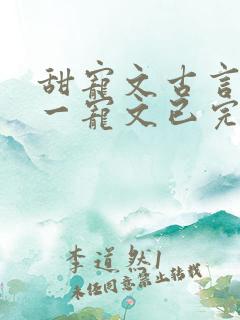 甜寵文古言
一寵文已完
李道然1
未经同意禁止转载